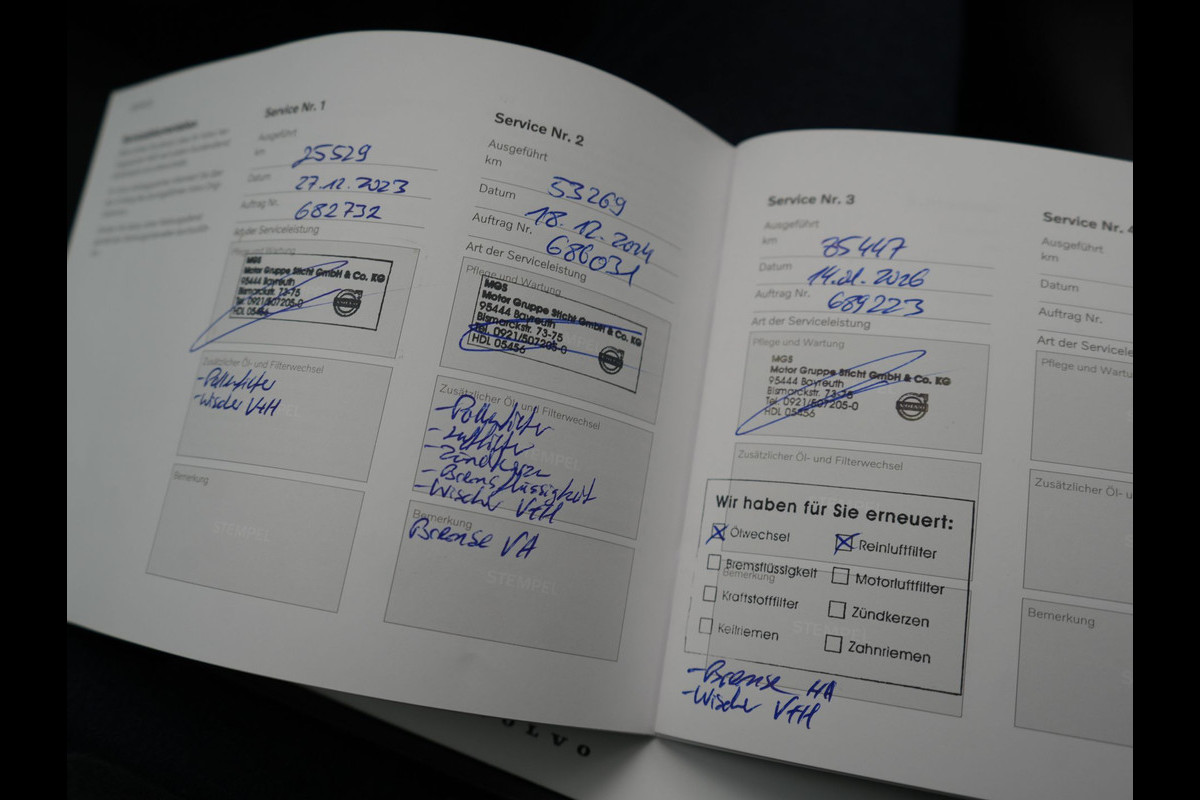 Service Nr. 1
Ausgeführt
km 25529
Datum 27.12.2023
Auftrag Nr. 682732
Art der Serviceleistung
Pflege und Wartung
MGS
Motor Gruppe Sticht GmbH & Co. KG
95444 Bayreuth
Bismarckstr. 73-75
Tel. 0921/507205-0
HDL 05456
VOLVO
Zusätzlicher Öl- und Filterwechsel
- Pollenfilter
- Wischer V+H
Bemerkung
STEMPEL
Service Nr. 2
Ausgeführt
km 53269
Datum 18.12.2024
Auftrag Nr. 686031
Art der Serviceleistung
Pflege und Wartung
MGS
Motor Gruppe Sticht GmbH & Co. KG
95444 Bayreuth
Bismarckstr. 73-75
Tel. 0921/507205-0
HDL 05456
VOLVO
Zusätzlicher Öl- und Filterwechsel
- Pollenfilter
- Luftfilter
- Zündkerze
- Bremsflüssigkeit
- Wischer V+H
STEMPEL
Bemerkung
Bremse VA
STEMPEL
Service Nr. 3
Ausgeführt
km 85447
Datum 14.01.2026
Auftrag Nr. 689223
Art der Serviceleistung
Pflege und Wartung
MGS
Motor Gruppe Sticht GmbH & Co. KG
95444 Bayreuth
Bismarckstr. 73-75
Tel. 0921/507205-0
HDL 05456
VOLVO
Zusätzlicher Öl- und Filterwechsel
Wir haben für Sie erneuert:
Ölwechsel Reinluftfilter
Bremsflüssigkeit Motorluftfilter
Bemerkung
Kraftstofffilter Zündkerzen
STEMPEL
Keilriemen Zahnriemen
- Bremse HA
- Wischer V+H
Service Nr. 4
Ausgeführt
km
Datum
Auftrag Nr.
Art der Service
Pflege und Wartu
Zusätzlicher Öl- u
Bemerkung
VOLVO